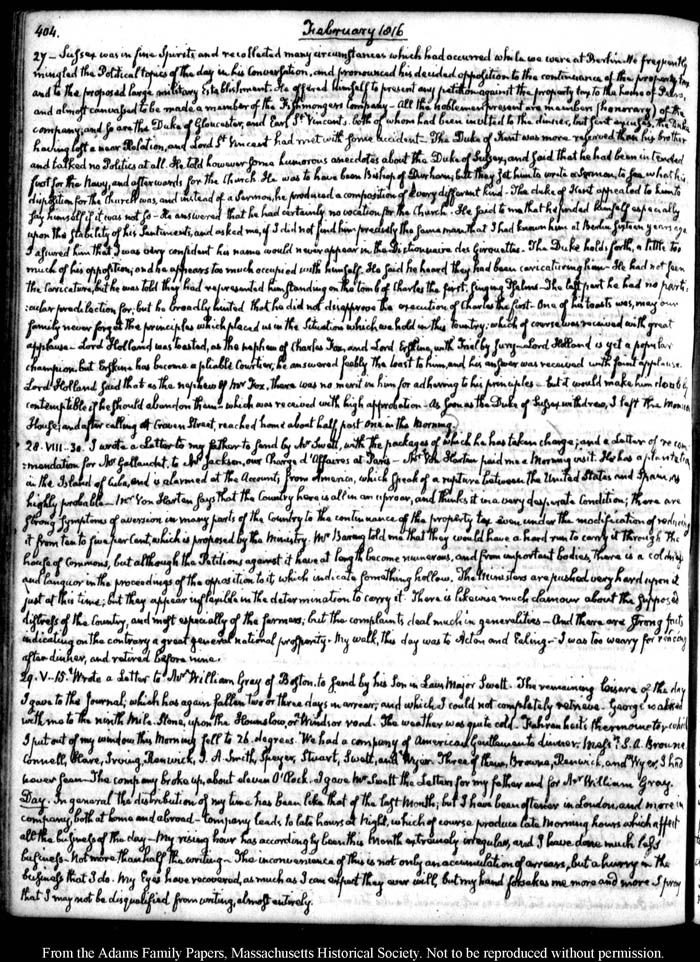 404.
February 1816
27 - Sussex was in fine Spirits, and recollected many circumstances which had occurred while we were at Berlin. He frequently
mingled the Political topics of the day in his Conversation, and pronounced his decided opposition to the continuance of the property tax,
and to the proposed large military Establishment. He offered himself to present any petition against the property tax to the house of Peers,
and almost canvassed to be made a member of the Fishmongers Company - All the noblemen present are members (honorary) of the
company, and so are the Duke of Gloucester, and Earl St. Vincent, both of whom had been invited to the dinner, but sent excuses; the Duke
having lost a near Relation, and Lord St. Vincent had met with some accident - The Duke of Kent was more reserved than his brother
and talked no Politics at all. He told however some humorous anecdotes about the Duke of Sussex, and said that he had been intended
first for the Navy, and afterwards for the Church. He was to have been Bishop of Durham; but they set him to write a Sermon, to see what his
disposition for the Church was, and instead of a Sermon, he produced a composition of a very different kind. The duke of Kent appealed to him to
say himself if it was not so - He answered that he had certainly no vocation for the Church. He said to me that he prided himself especially
upon the stability of his Sentiments, and asked me, if I did not find him precisely the same man that I had known him at Berlin sixteen years ago
I assured him that I was very confident his name would never appear in the Dictionnaire des Girouettes. The Duke holds forth, a little too
much of his opposition; and he appears too much occupied with himself. He said he heard they had been caricaturing him - He had not seen
the Caricature, but he was told they had represented him standing on the tomb of Charles the first, singing Psalms - The last part he had no parti-
cular predilection for; but he broadly hinted that he did not disapprove the execution of Charles the first - One of his toasts was, may our
family never forget the principles which placed us in the Situation which we hold in this Country: which of course was received with great
applause - Lord Holland was toasted, as the nephew of Charles Fox, and Lord Erskine, with Trial by Jury - Lord Holland is yet a popular
champion, but Erskine has become a pliable Courtier; he answered feebly the toast to him, and his answer was received with faint applause.
Lord Holland said that as the nephew of Mr Fox, there was no merit in him for adhering to his principles - but it would make him doubly
contemptible if he should abandon them - which was received with high approbation - As soon as the Duke of Sussex withdrew, I left the Mansion
House; and after calling at Craven Street, reached home about half past one in the Morning.
28. VIII-30. I wrote a Letter to my father to send by Mr Swett, with the packages of which he has taken charge; and a Letter of recom-
mendation for Mr Gallaudet, to Mr Jackson, our Chargé d'Affaires at Paris - Mr Von Harten paid me a Morning visit. He has a plantation
in the Island of Cuba, and is alarmed at the Accounts from America, which speak of a rupture between the United States and Spain, as
highly probable - Mr Von Harten says that the Country here is all in an uproar, and thinks it in a very desperate Condition; there are
strong symptoms of aversion in many parts of the Country to the continuance of the property tax even under the modification of reducing
it from ten to five per Cent, which is proposed by the Ministry. Mr Baring told me that they would have a hard run to carry it through the
house of Commons, but although the Petitions against it have at length become numerous, and from important bodies, there is a coldness
and languor in the proceedings of the opposition to it which indicate something hollow. The Ministers are pushed very hard upon it
just at this time; but they appear inflexible in the determination to carry it. There is likewise much clamour about the supposed
distress of the Country, and most especially of the farmers; but the complaints deal much in generalities - And there are strong facts
indicating on the contrary a great general national prosperity. My walk, this day was to Acton and Ealing - I was too weary for writing
after dinner, and retired before nine.
29. V-15. Wrote a Letter to Mr William Gray of Boston. to send by his Son in Law Major Swett. The remaining leisure of the day
I gave to the Journal; which has again fallen two or three days in arrear; and which I could not completely retrieve. George walked
with me to the ninth Mile Stone, upon the Hounslow, or Windsor road. The weather was quite cold. Fahrenheit's thermometer which
I put out of my window this Morning fell to 26. degrees. We had a company of American Gentlemen to dinner; Messrs S. A. Browne
Connell, Clare, Irving, Renwick, J. A. Smith, Speyer, Stuart, Swett, and Wyer. Three of them, Browne, Renwick, and Wyer, I had
never seen - The company broke up, about eleven O'Clock. I gave Mr Swett the Letters for my father and for Mr William Gray.
Day. In general the distribution of my time has been like that of the last Month; but I have been oftener in London, and more in
company, both at home and abroad - Company leads to late hours at Night, which of course produce late Morning hours which affect
all the business of the day - My rising hour has accordingly been this Month extremely irregular, and I have done much less
business - Not more than half the writing - The inconvenience of this is not only an accumulation of arrears, but a hurry in the
business that I do. My Eyes have recovered, as much as I can expect they ever will, but my hand forsakes me more and more. I pray
that I may not be disqualified from writing, almost entirely.
From the Adams Family Papers, Massachusetts Historical Society. Not to be reproduced without permission.